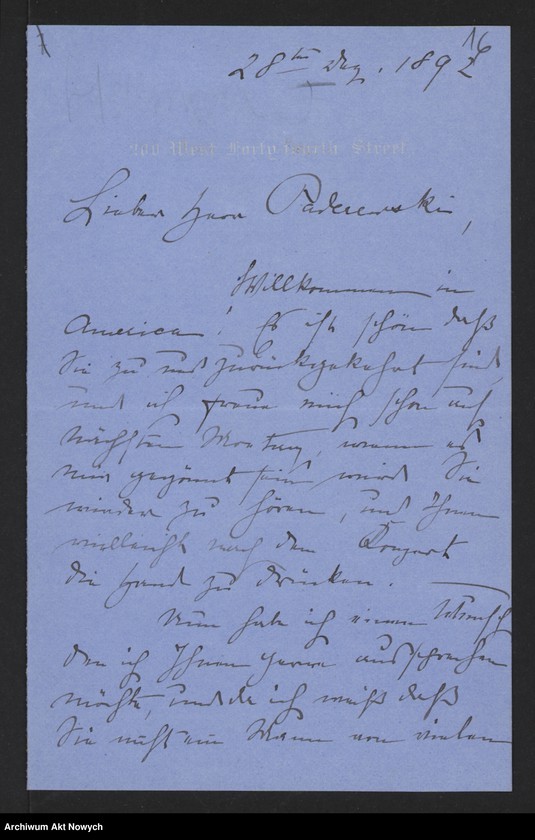 16
28ten Dez. 1892
Lieber Herr Paderewski,
Willkommen in
America! Es ist schön daß
Sie zu uns zurückgekehrt sind,
und ich freue mich schon auf
nächsten Montag, wenn es
mir gegönnt sein wird Sie
wieder zu hören, und Ihnen
vielleicht nach dem Konzert
die Hand zu drücken. —
Nun habe ich einen Wunsch
den ich Ihnen gerne aussprechen
möchte, und da ich weiß daß
Sie nicht ein Mann von vielen
Archiwum Akt Nowych